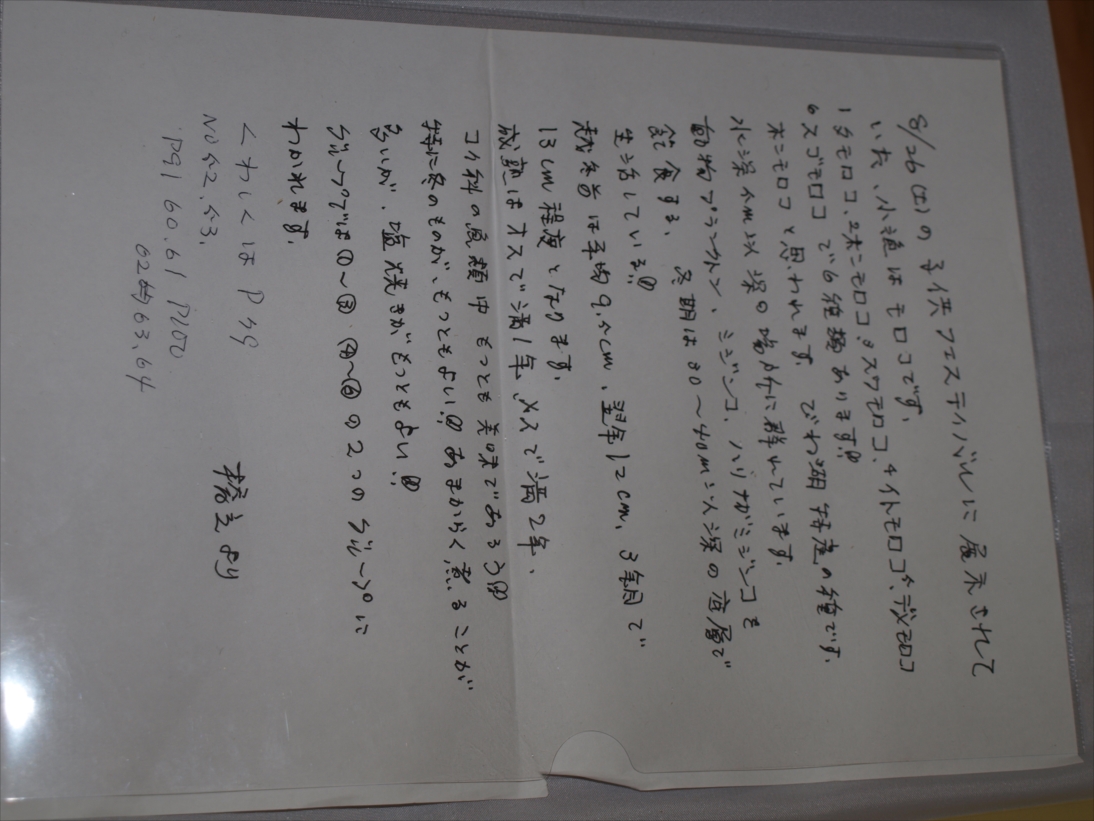 8/26(土)の 子供フェスティバルに 展示されて
いた、小魚は モロコです。
1タモロコ、2ホンモロコ 3スワモロコ、4イトモロコ 5デメモロコ
6スゴモロコ で6種類あります!!
ホンモロコと思われます。 びわ湖 特産の種です。
水深5m以深の 沖合に群れています。
動物プランクトン、ミジンコ、ハリナガミジンコを
飽食する。 冬期は80〜90m以深の底層で
生活しています!!
越冬前は平均9.5cm、翌年12cm、3年目で
13cm程度となります。
成熟はオスで満1年、メスで満2年、
コイ科の魚類中 もっとも 美味である!!
特に冬のものが、もっともよい!! あまからく煮ることが
多いが、塩焼きがもっともよい!!
グループでは①〜③ ④〜⑥の2つの グループに
わかれます。
くわしくは P59
No52.53.
P91 60.61 P100
62 63.64
より